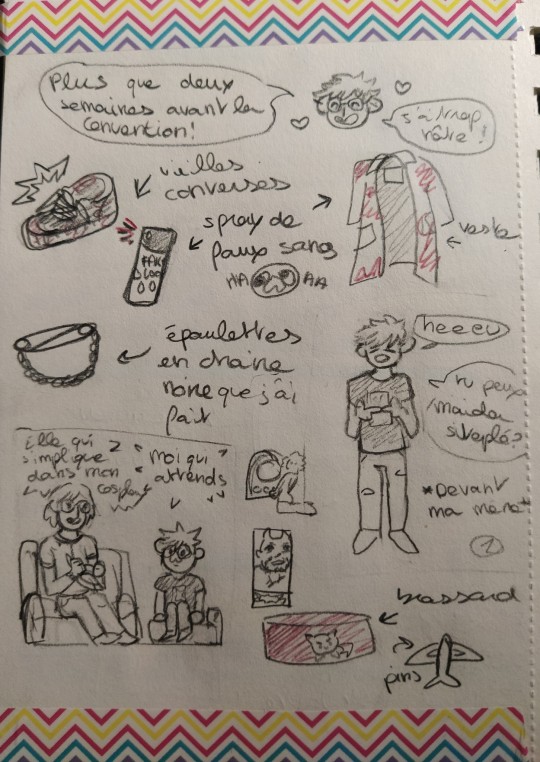 Plus que deux
semaines avant la
convention!
s'a trop
hâte!
vieilles
converses
spray de
faux sang
FAK
BLOO
HA
HA
veste
épaulettes
en chaine
noire que j'ai
fait
heeeu
tu peux
m'aider
siteplé?
*Devant
ma mère*
1
Elle qui
s'implique
dans mon
cosplay
"moi qui
attends"
brassard
pins